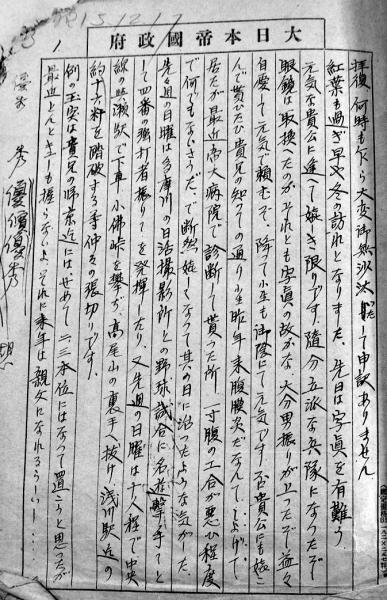 15.12.17
大日本帝國政府
拝復、何時も乍ら大変御無沙汰して申訳ありません
紅葉も過ぎ早や冬の訪れとなりました、先日は写真を有難う
元気な貴公に逢って嬉き限りです、随分立派な兵隊になったぞ
眼鏡は取換へたのかそれとも写真の故かな大分男振りが上ったぞ益々
自愛して元気で頼むぞ、降って小生も御陰にて元気です
んで貰ひたひ貴見の知ての通り小生昨年来腹膜炎だなんて
居たが最近帝大病院で診断して貰った所、一寸腹の工合が悪ひ程度
で何でもないさうだ、で断然嬉しくなって其の日に治ったような気がした
先週の日曜は多摩川の日活撮影所との野球試合に名遊撃手と
して四番の強打者振りを発揮したり、又先週の日曜は十八程で中央
線の與瀬駅で下車 小佛峠を攀ぢ、高尾山の裏手へ抜け浅川駅迄の
約十六粁を踏破する等仲々の張切りです、
例の玉突は貴兄の帰京迄には、せめて二三本位にはなって置こうと思ったが
最近とんとキューも握らないよ、それに来年は親父になれるらしい
優秀
優價優秀